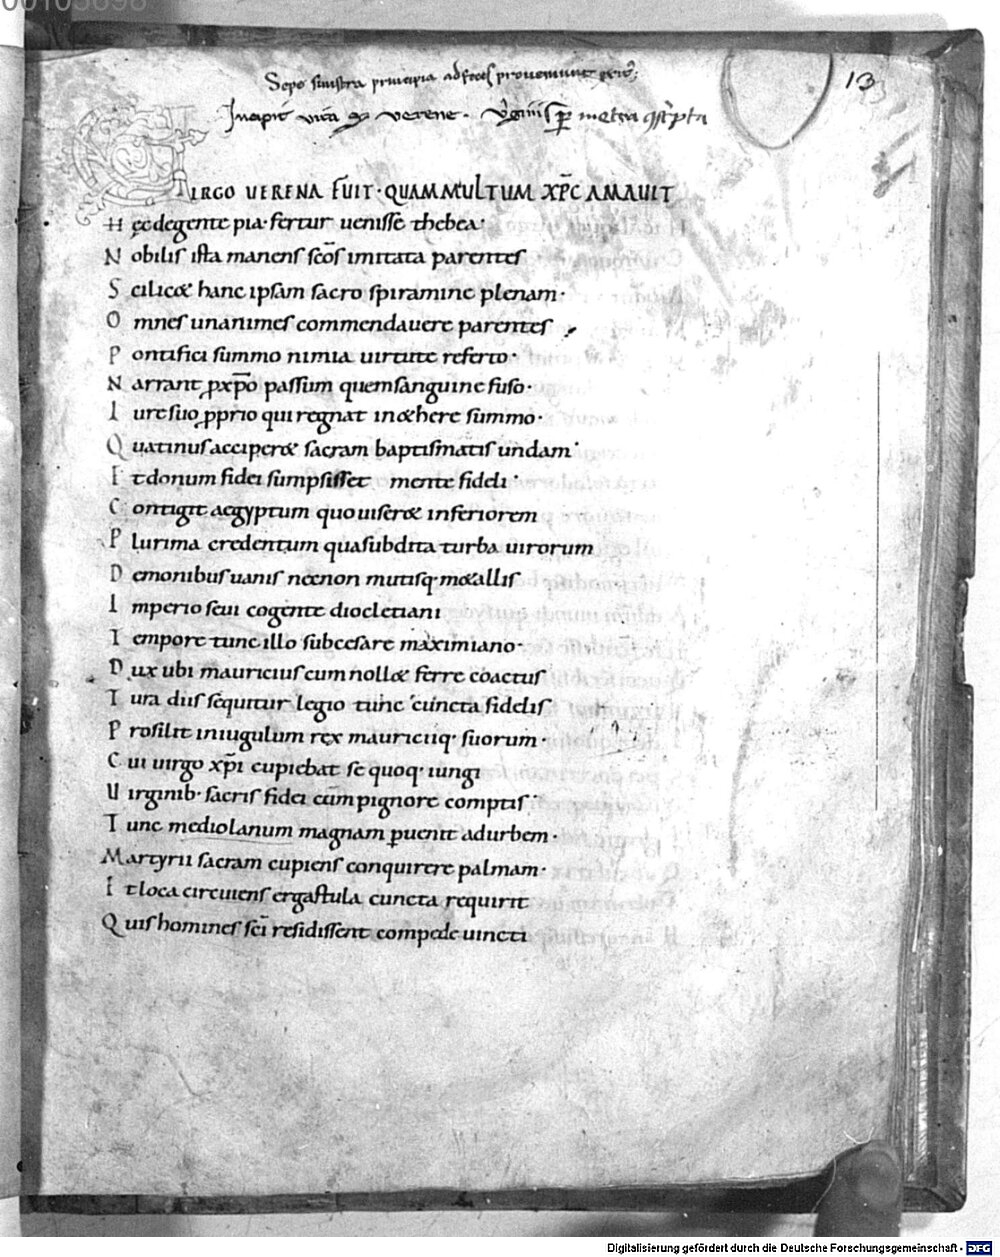 00105698
13
Sepe sinistra principia ad proveniunt
Incipit vita verene. metra
VIRGO VERENA FUIT· QUAM MULTUM XPC AMAUIT
Hęc degente pia· fertur uenisse thebea·
Nobilis ista manens scōs imitata parentes
Scilic& hanc ipsam sacro spiramine plenam·
Omnes unanimes commendauere parentes
Pontifici summo nimia uirtute referto·
Narrant p xpō passum quem sanguine fuso·
Iure suo pprio qui regnat in &here summo·
Quatinus acciper& sacram baptismatis undam·
Et donum fidei sumpsisset mente fideli·
Contigit aegyptum quo uiser& inferiorem
Plurima credentum qua subdita turba uirorum
Demonibus uanis necnon mutisq· m&allis
Imperio seui cogente diocletiani
Tempore tunc illo sub cesare maximiano·
Dux ubi mauricius cum noll& ferre coactus
Tura diis sequitur legio tunc cuncta fidelis
Prosilit in iugulum rex mauriciiq· suorum·
Cui uirgo xp̄i cupiebat se quoq· iungi
Uirginib· sacris fidei cum pignore comptis·
Tunc mediolanum magnam puenit ad urbem·
Martyrii sacram cupiens conquirere palmam·
Et loca circuiens ergastula cuncta requirit
Quis homines sci residissent compede uincti
Digitalisierung gefördert durch die Deutsche Forschungsgemeinschaft - DFG